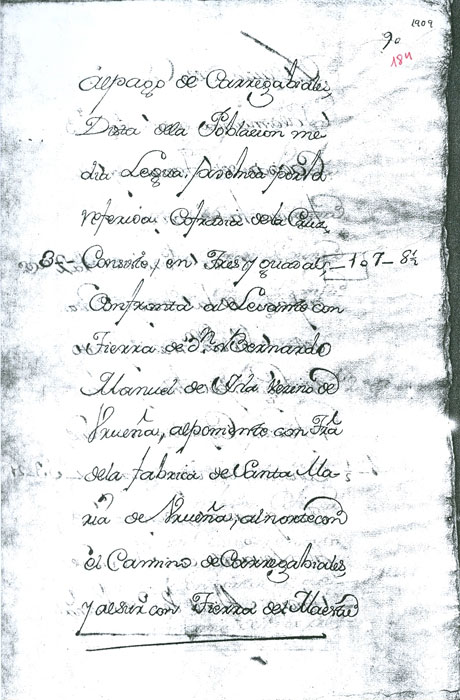 1909
90
184
Alpago de Carregabiales,
Dista dela Poblacion me
dia Legua, propia por la
referida Cofradia dela Cruz,
3- Consiste, en Tres quartas, - 107 - 8½
Confronta al Levante con
Tierra de Dn. Bernardo
Manuel de Isla vecino de
Urueña, alponiente con Tra
dela fabrica de Santa Ma-
ria de Urueña, alnorte con
el Camino de Carregabiales,
y alsur con Tierra del Maestro